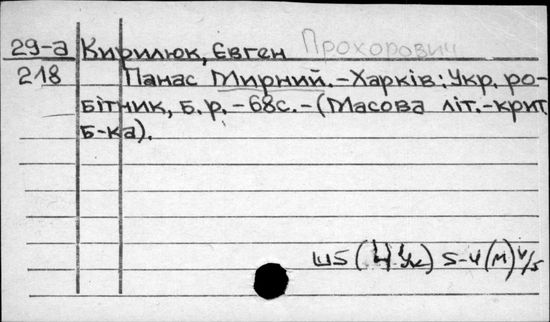 29-а Кирилюк, Євген Прохорович
218 Панас Мирний. – Харків: Укр. ро-
бітник, б. р. – 68с. – (Масова літ.-крит.
б-ка).
Ш5 (4Ук) 5-4 (М)